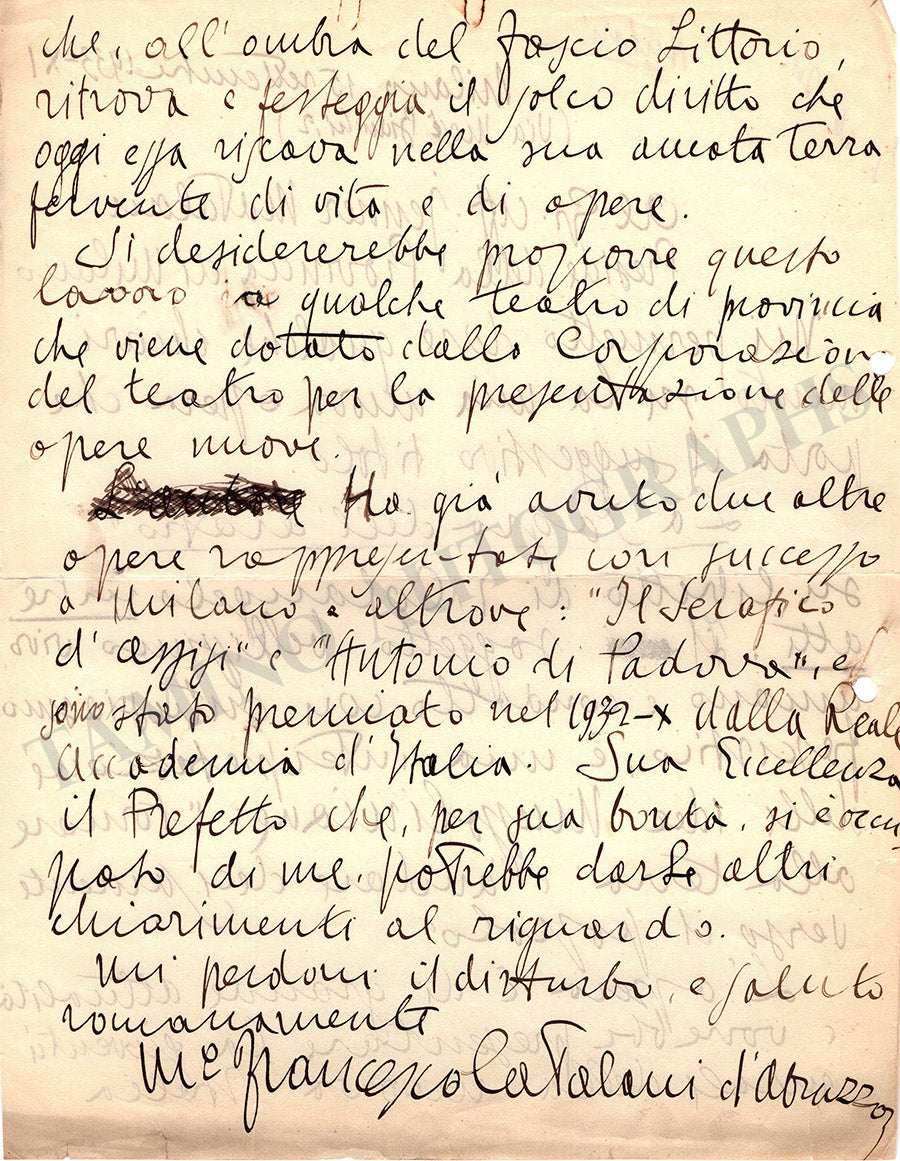 che, all'ombra del fascio Littorio,
ritrova e festeggia il solco diritto che
oggi essa riscava nella sua amata terra
fervente di vita e di opere.
Si desidererebbe proporre questo
lavoro a qualche teatro di provincia
che viene dotato dalla Corporazion
del teatro per la presentazione delle
opere nuove.
L'autore Ha già avuto due altre
opere rappresentate con successo
a Milano e altrove: "Il Serafico
d'assisi" e "Antonio di Padova", e
sono stato premiato nel 1932-X dalla Reale
Accademia d'Italia. Sua Eccellenza
il Prefetto che, per sua bontà, si è occu
pato di me, potrebbe darLe altri
chiarimenti al riguardo.
Mi perdoni il disturbo, e saluto
romanamente
M° Francesco Catalani d'Abruzzo
TAMINO AUTOGRAPHS